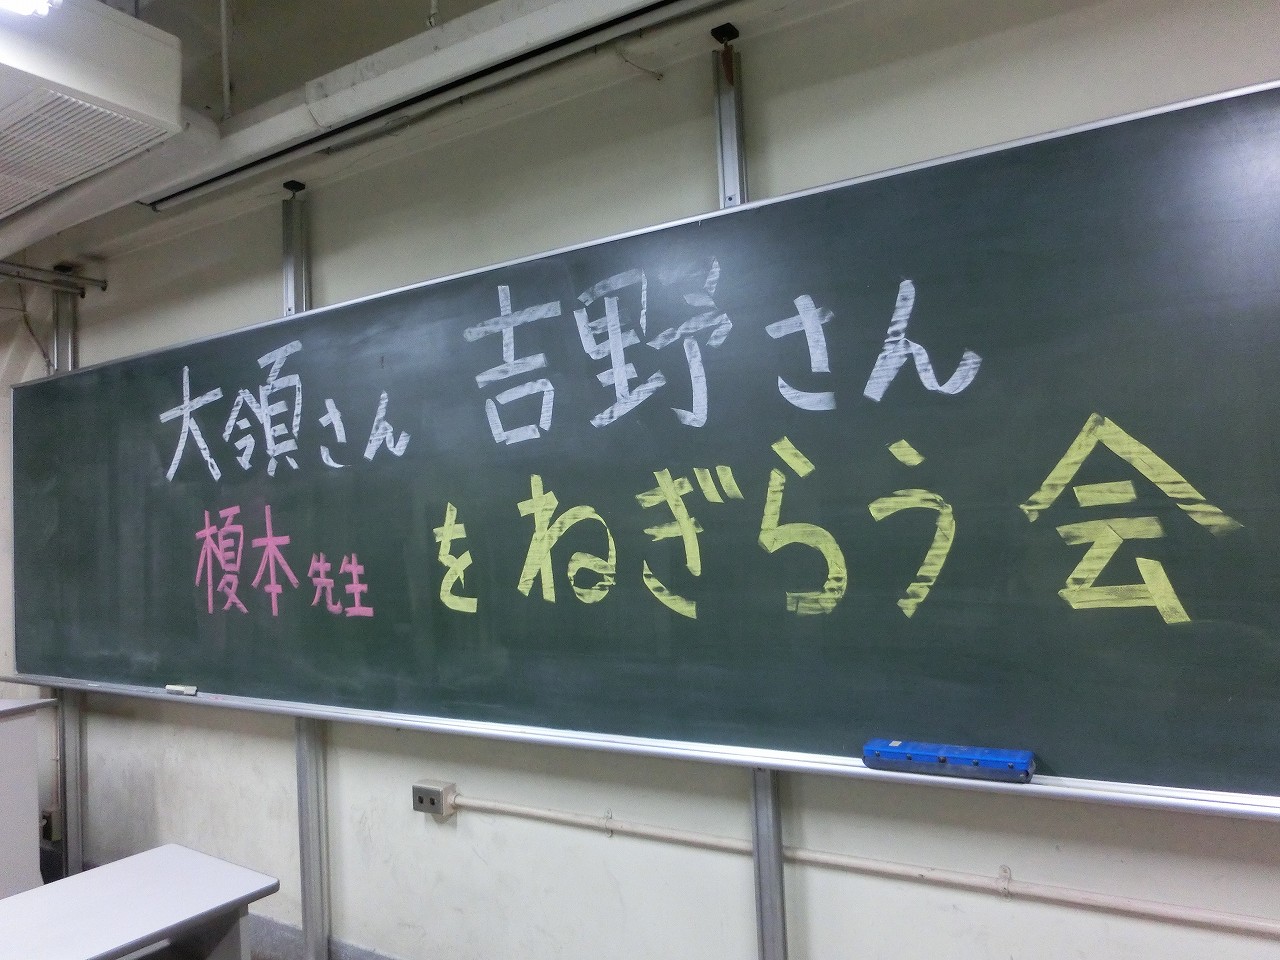 大領さん 吉野さん
榎本先生 をねぎらう会